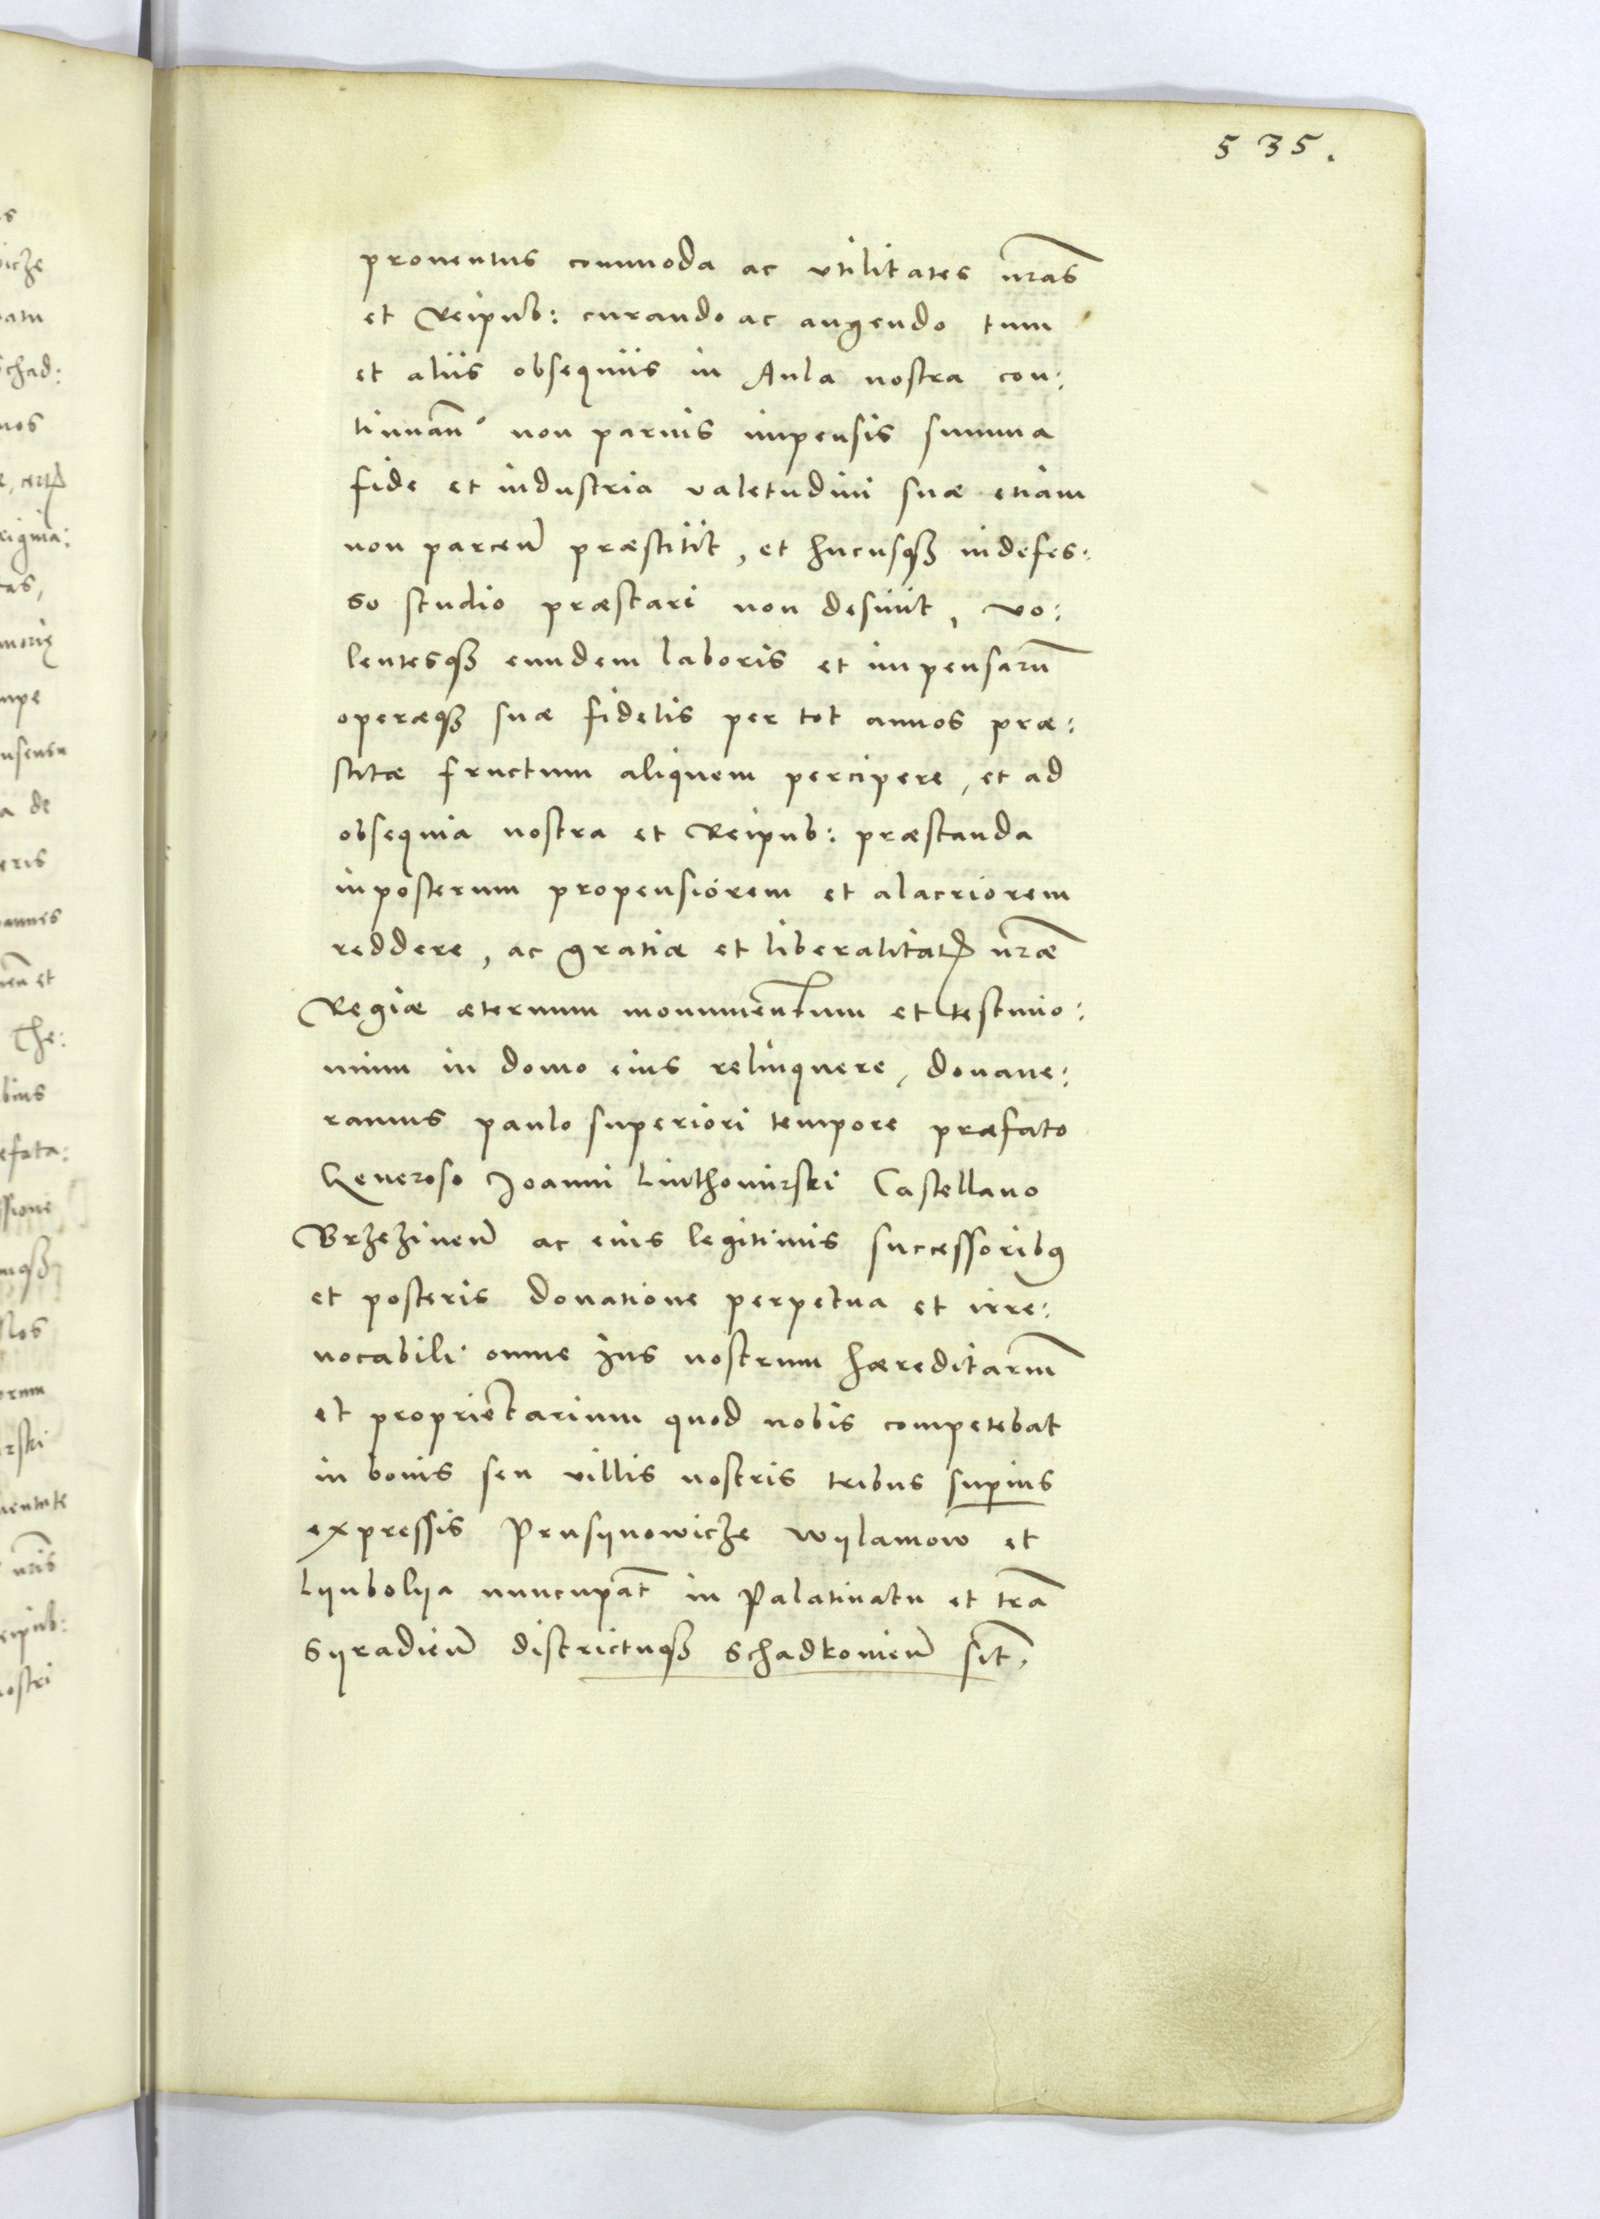 535.
prouentus commoda ac vtilitates nr̃as
et Reipub: curando ac augendo tum
et aliis obsequiis in Aula nostra con:
tinuañ non paruis impensis summa
fide et industria valetudini suæ etiam
non parceñ præstitit, et hucusqꝫ indefes:
so studio præstari non desinit, vo:
lentesqꝫ eundem laboris et impensarũ
operæqꝫ suæ fidelis per tot annos præ:
stitæ fructum aliquem percipere, et ad
obsequia nostra et Reipub: præstanda
inposterum propensiorem et alacriorem
reddere, ac gratiæ et liberalitatꝭ nr̃æ
Regiæ æternum monumentum et testimo:
nium in domo eius relinquere, donaue:
ramus paulo superiori tempore præfato
Generoso Joanni Linthomirski Castellano
Brzezineñ ac eius legitimis successoribꝰ
et posteris donatione perpetua et irre:
uocabili omne jus nostrum hæreditariũ
et proprietarium quod nobis competebat
in bonis seu villis nostris tribus sup̱ius
expressis Prusijnowicze Wijlamow et
Lijnbolija nuncupat̃ in Palatinatu et tr̃a
Sijradieñ districtuqꝫ Schadkouieñ sit̃,